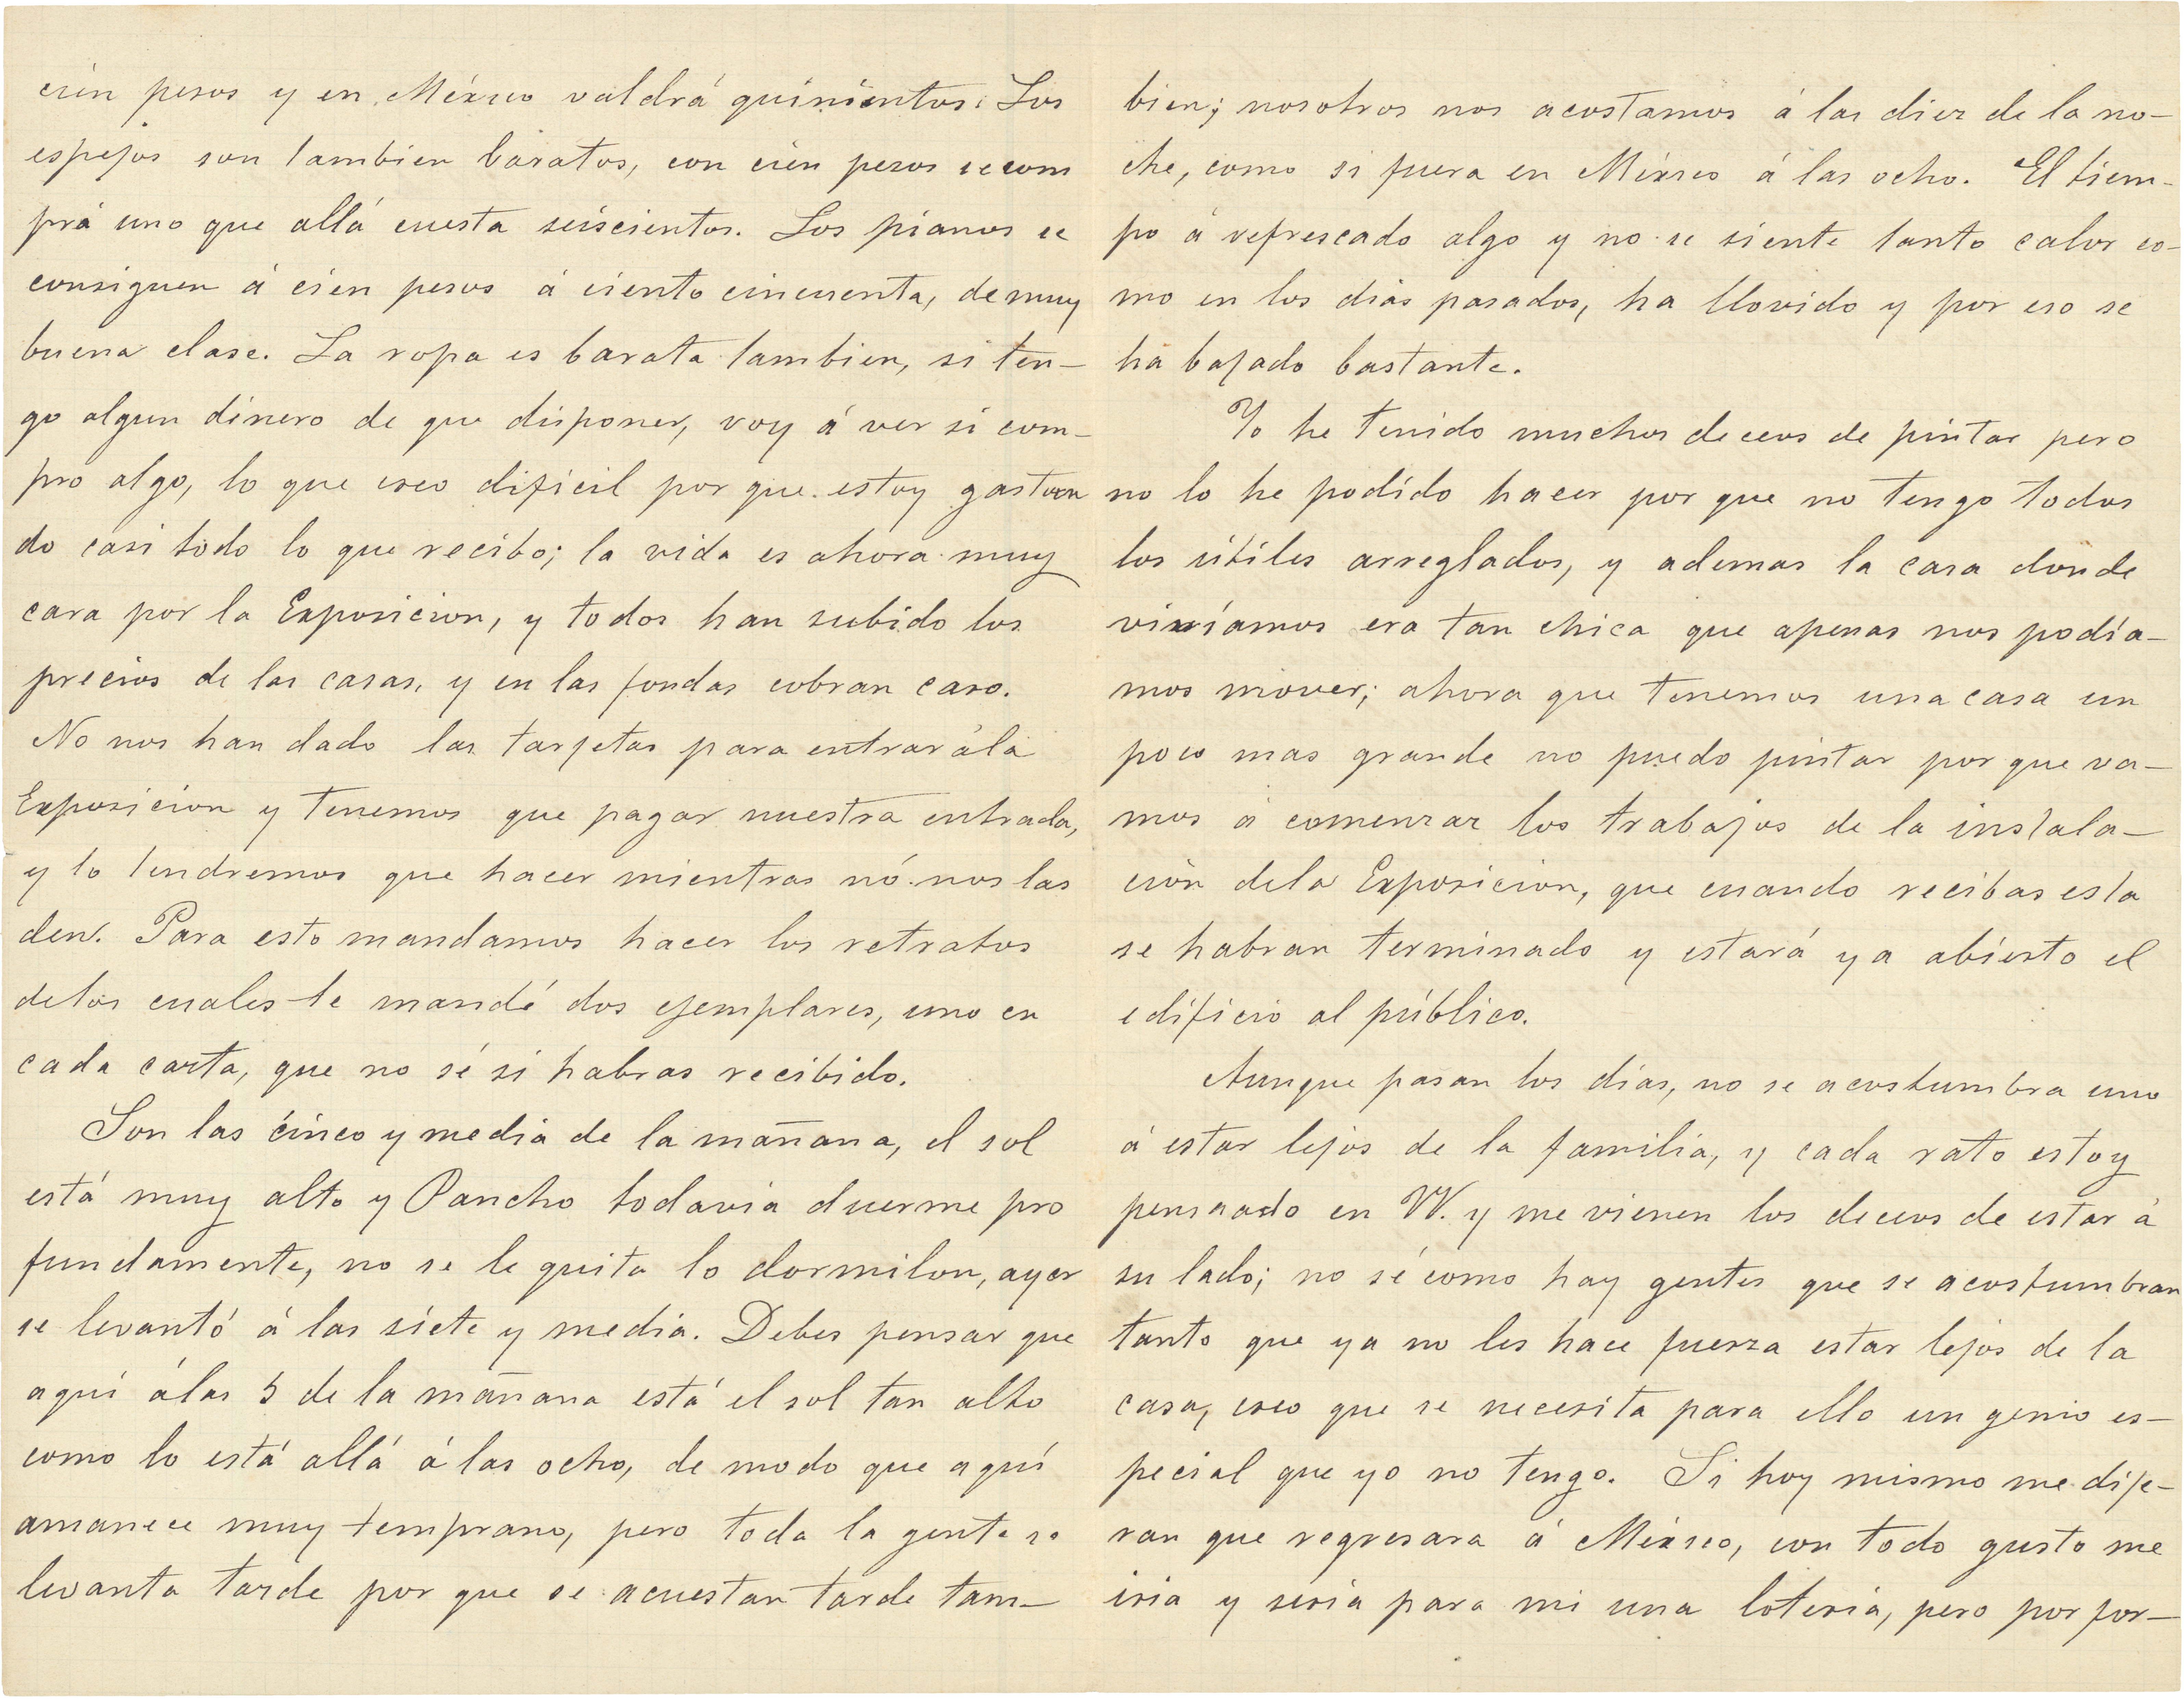 cien pesos y en México valdrá quinientos. Los
espejos son tambien baratos, con cien pesos se com
pra uno que allá cuesta seiscientos. Los pianos se
consiguen á cien pesos á ciento cincuenta, de muy
buena clase. La ropa es barata tambien, si ten-
go algun dinero de que disponer, voy á ver si com-
pro algo, lo que creo dificil por que estoy gastan
do casi todo lo que recibo; la vida es ahora muy
cara por la Exposicion, y todos han subido los
precios de las casas, y en las fondas cobran caro.
No nos han dado las tarjetas para entrar á la
Exposicion y tenemos que pagar nuestra entrada,
y lo tendremos que hacer mientras nó nos las
den. Para esto mandamos hacer los retratos
de los cuales te mandé dos ejemplares, uno en
cada carta, que no sé si habras recibido.
Son las cinco y media de la mañana, el sol
está muy alto y Pancho todavia duerme pro
fundamente, no se le quita lo dormilon, ayer
se levantó á las siete y media. Debes pensar que
aquí á las 5 de la mañana está el sol tan alto
como lo está allá á las ocho, de modo que aquí
amanece muy temprano, pero toda la gente se
levanta tarde por que se acuestan tarde tam-
bien; nosotros nos acostamos á las diez de la no-
che, como si fuera en México á las ocho. El tiem-
po á refrescado algo y no se siente tanto calor co-
mo en los dias pasados, ha llovido y por eso se
ha bajado bastante.
Yo he tenido muchos deceos de pintar pero
no lo he podido hacer por que no tengo todos
los útiles arreglados, y ademas la casa donde
viviamos era tan chica que apenas nos podía-
mos mover; ahora que tenemos una casa un
poco mas grande no puedo pintar por que va-
mos á comenzar los trabajos de la instala-
ción de la Exposicion, que cuando recibas esta
se habran terminado y estará ya abierto el
edificio al público.
Aunque pasan los dias, no se acostumbra uno
á estar lejos de la familia, y cada rato estoy
pensando en VV. y me vienen los deceos de estar á
su lado; no sé como hay gentes que se acostumbran
tanto que ya no les hace fuerza estar lejos de la
casa, creo que se necesita para ello un genio es-
pecial que yo no tengo. Si hoy mismo me dije-
ran que regresara á México, con todo gusto me
iria y seria para mi una loteria, pero por for-